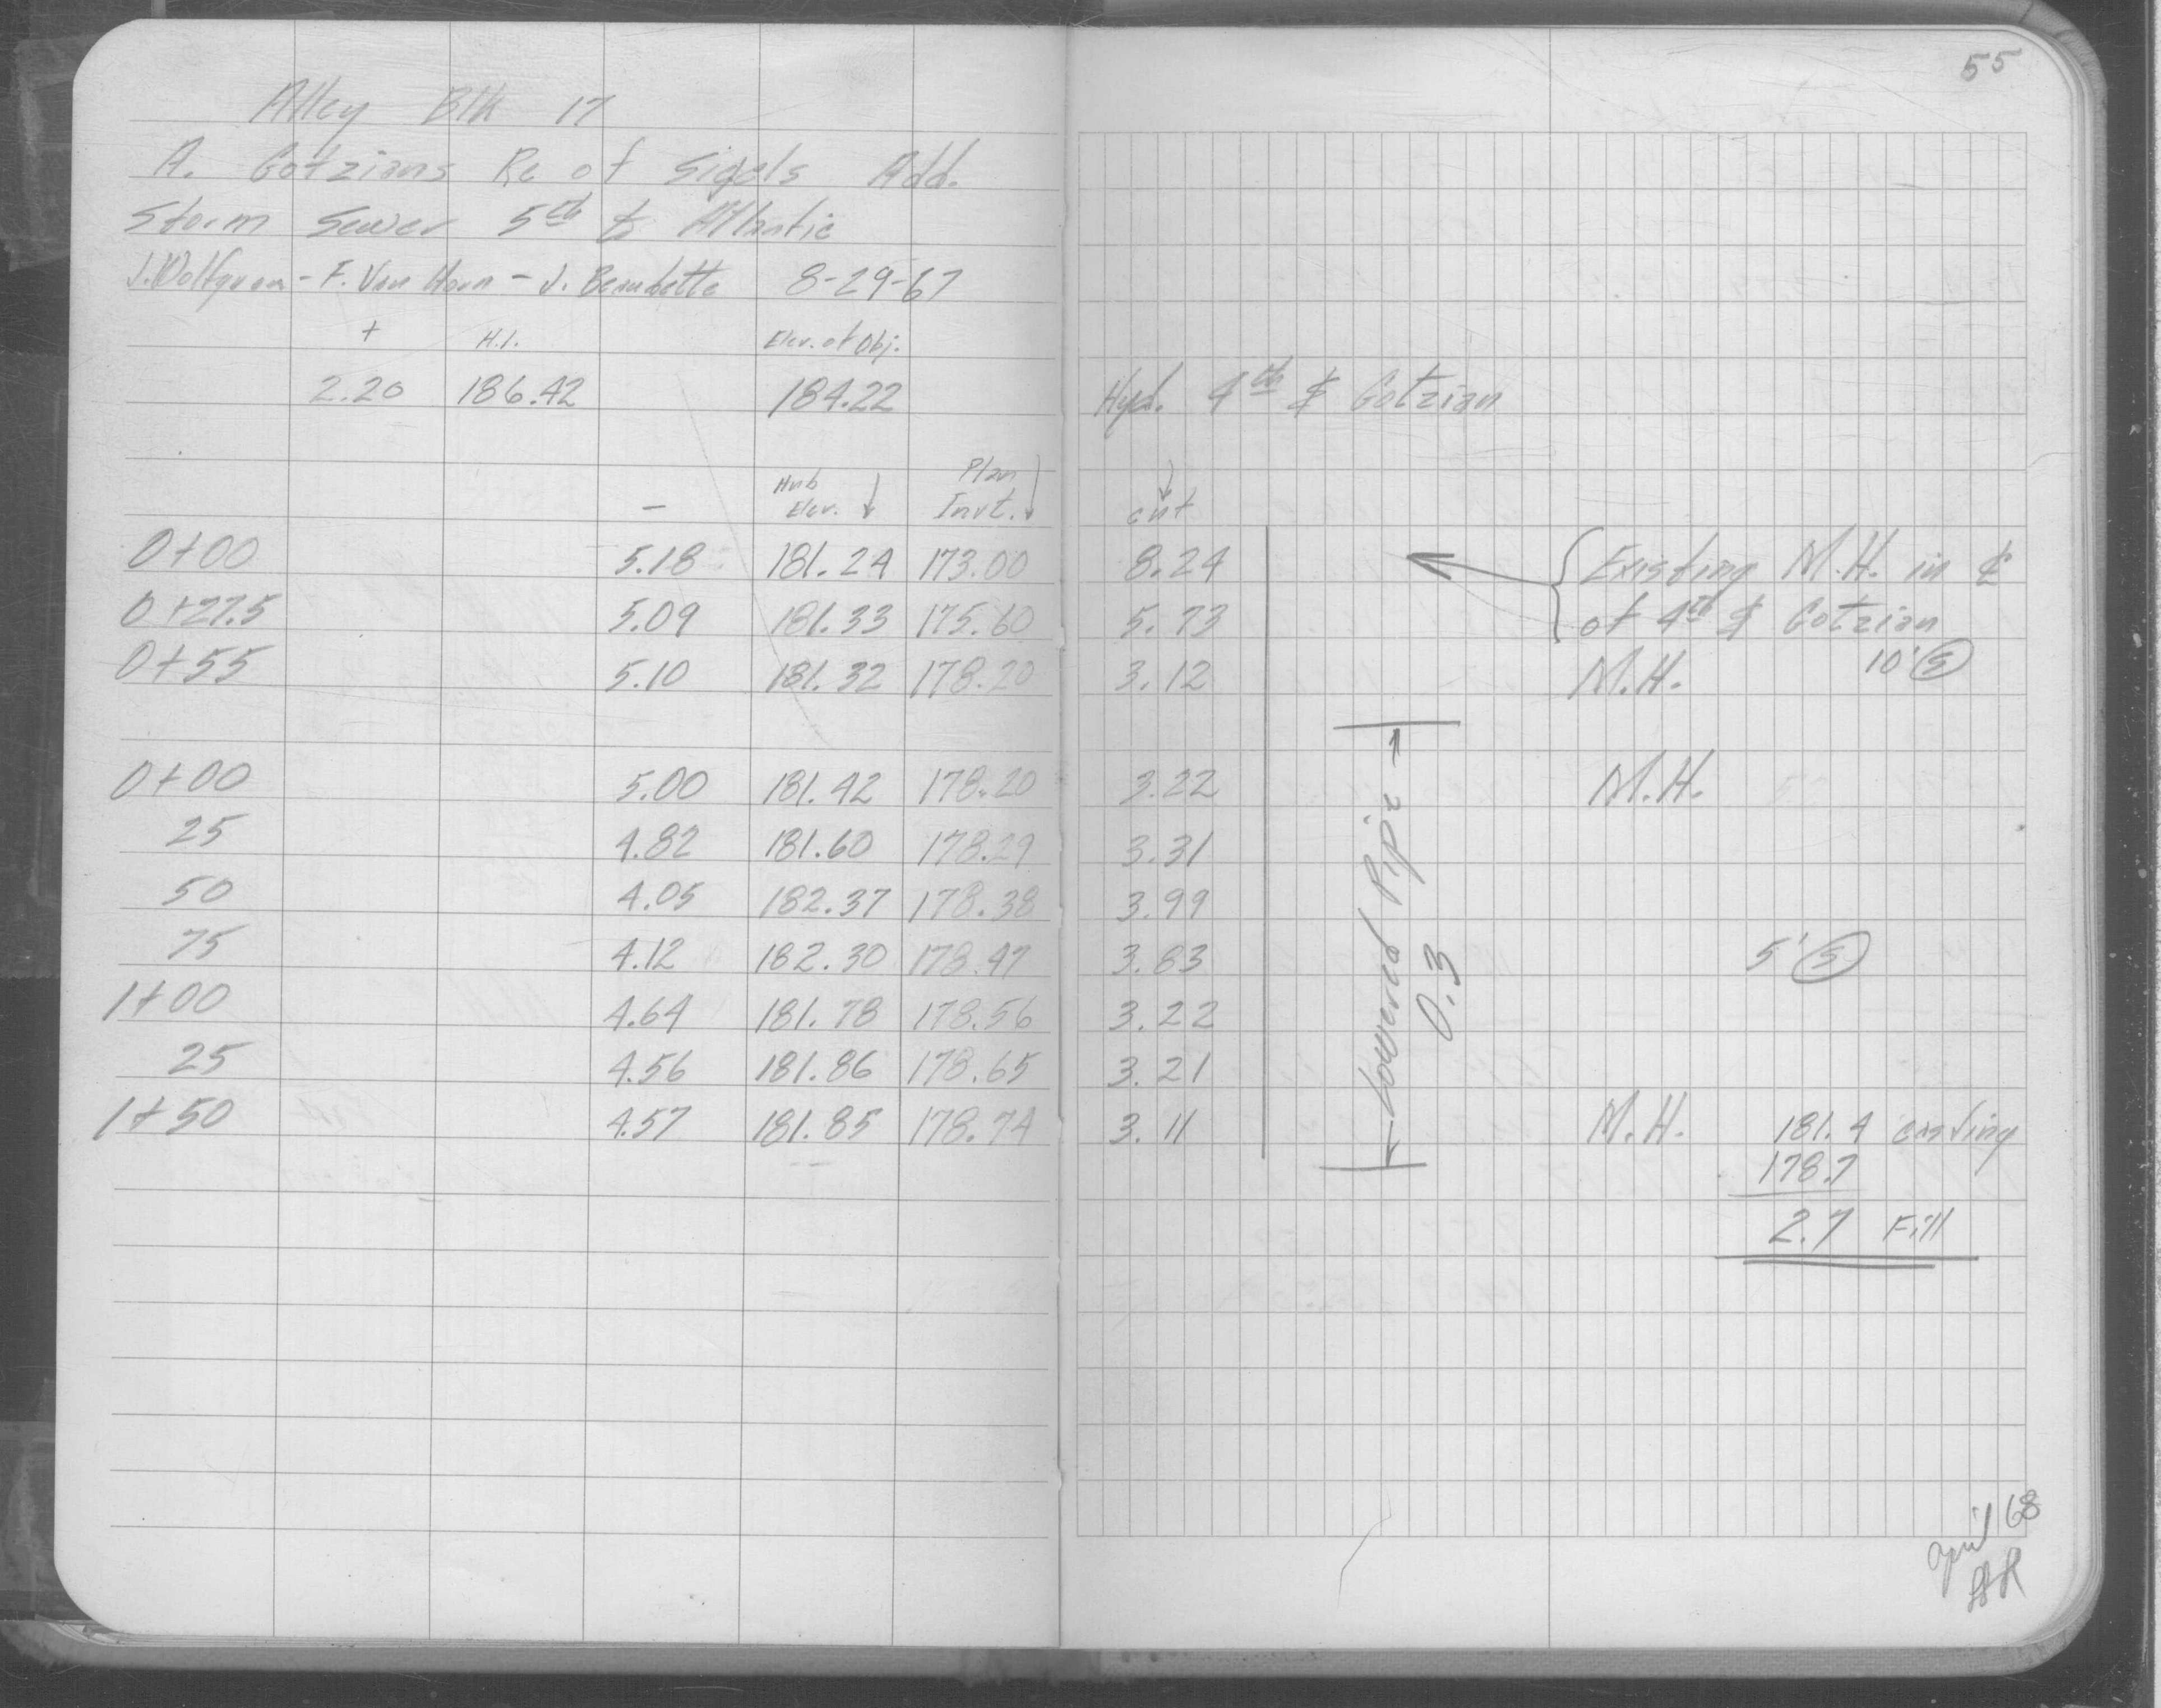 55
Alley Blk 17
A. Gotzians Re of Sigels Add.
Storm Sewer 5th & Atlantic
J. Wolfgram - F. Van Horn - J. 8-29-67
+ H.I. Elev. of Obj.
2.20 186.42 184.22 Hyd. 4th & Gotzian
- Hub Elev. ↓ Plan Invt. ↓ cut ↓
0+00 5.18 181.24 173.00 8.24 Existing M.H. in ℄
0+27.5 5.09 181.33 175.60 5.73 of 4th & Gotzian
0+55 5.10 181.32 178.20 3.12 M.H. 10' S
0+00 5.00 181.42 178.20 3.22 M.H.
25 4.82 181.60 178.29 3.31
50 4.05 182.37 178.38 3.99
75 4.12 182.30 178.47 3.83 5' S
1+00 4.64 181.78 178.56 3.22
25 4.56 181.86 178.65 3.21
1+50 4.57 181.85 178.74 3.11 M.H. 181.4 casting
178.7
2.7 Fill
← Lowered Pipe →
0.3
April 68